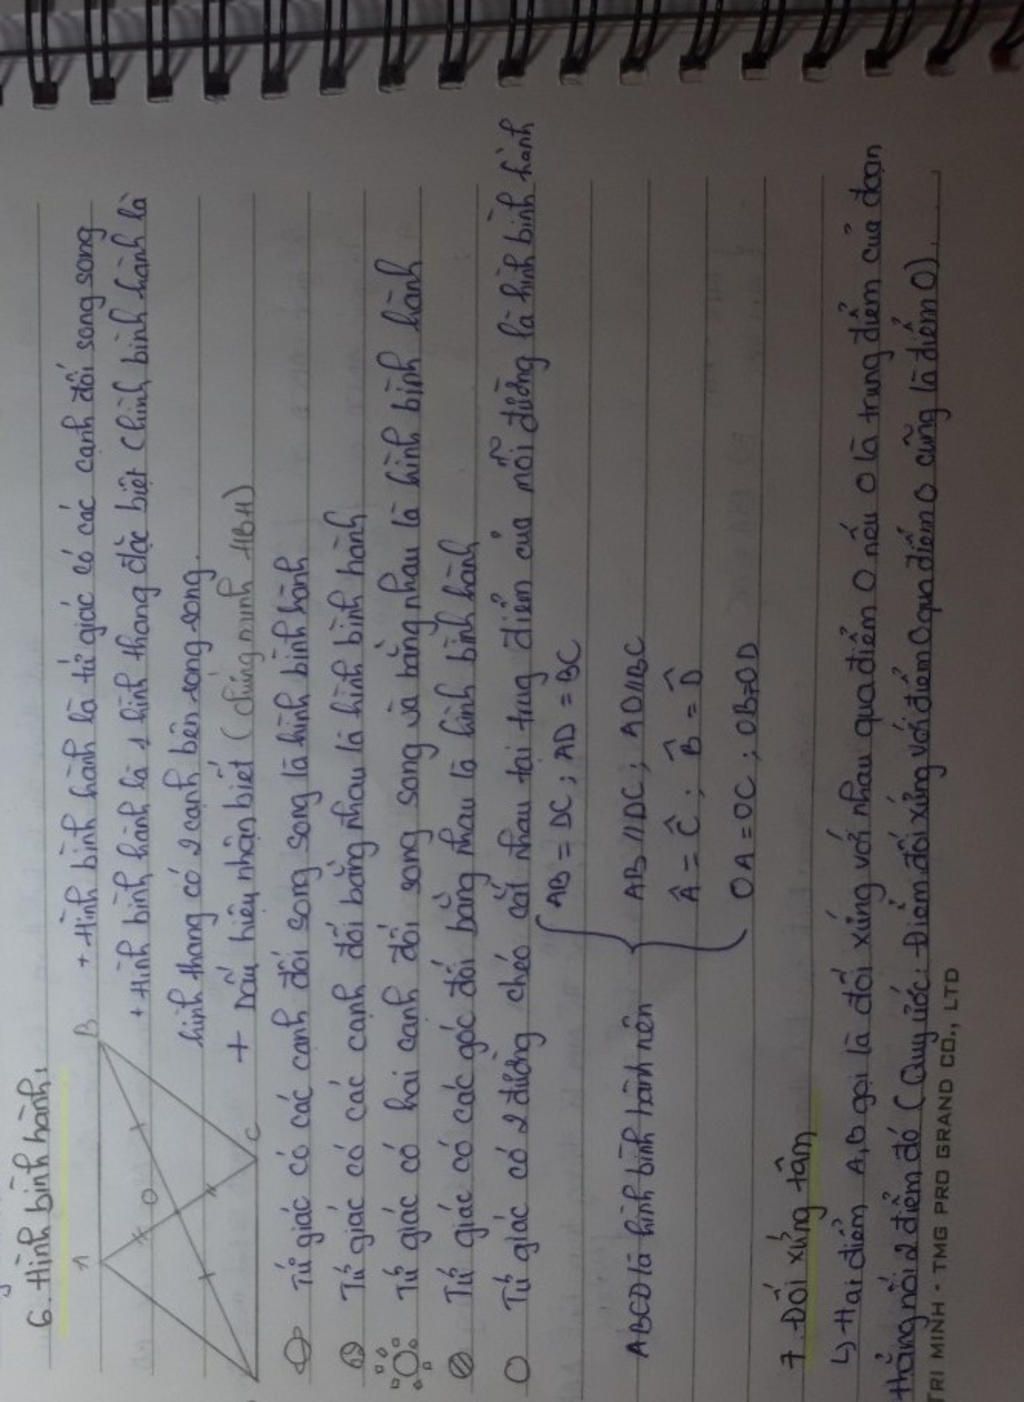 6. Hình bình hành:
A
B
O
C
+ Hình bình hành là tứ giác có các cạnh đối song song
+ Hình bình hành là 1 hình thang đặc biệt (hình bình hành là
hình thang có 2 cạnh bên song song.
+ Dấu hiệu nhận biết (chứng minh HBH)
Tứ giác có các cạnh đối song song là hình bình hành
Tứ giác có các cạnh đối bằng nhau là hình bình hành
Tứ giác có hai cạnh đối song song và bằng nhau là hình bình hành
Tứ giác có các góc đối bằng nhau là hình bình hành
Tứ giác có 2 đường chéo cắt nhau tại trug điểm của mỗi đường là hình bình hành
AB = DC ; AD = BC
ABCD là hình bình hành nên AB // DC ; AD // BC
Â = Ĉ ; B̂ = D̂
OA = OC ; OB = OD
7. Đối xứng tâm
↳ Hai điểm A, B gọi là đối xứng với nhau qua điểm O nếu O là trung điểm của đoạn
thẳng nối 2 điểm đó (Quy ước: Điểm đối xứng với điểm O qua điểm O cũng là điểm O).
TRI MINH · TMG PRO GRAND CO., LTD